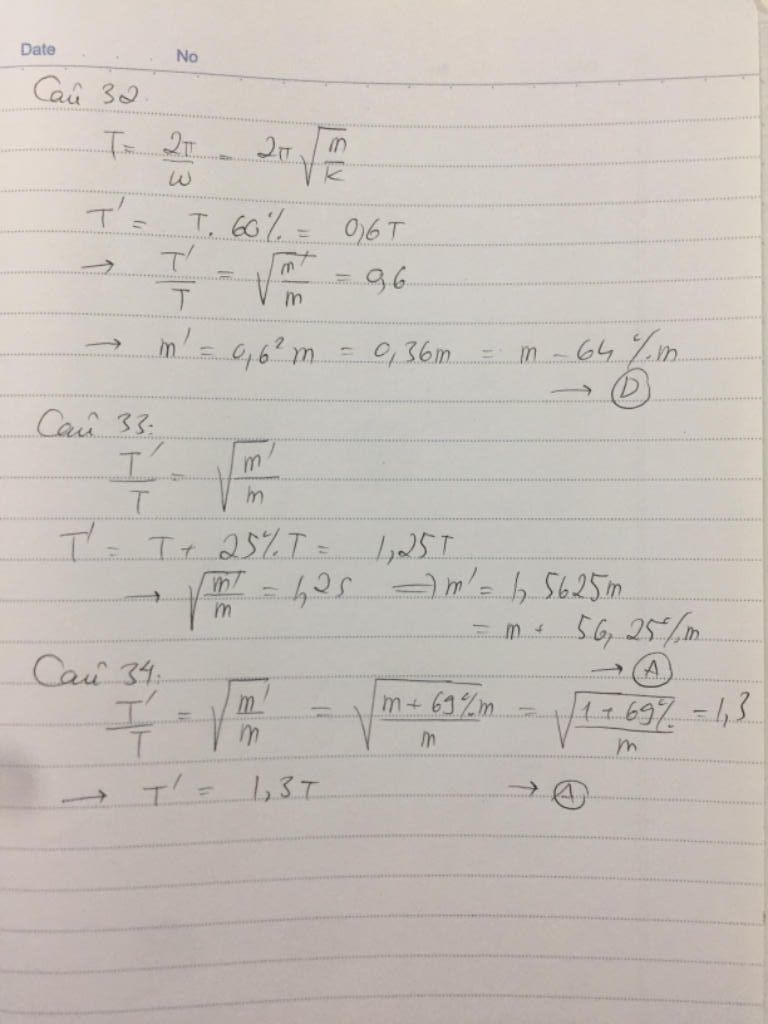 Date No
Câu 32.
T = 2π/ω = 2π √(m/k)
T' = T. 60% = 0,6T
→ T'/T = √(m'/m) = 0,6
→ m' = 0,6² m = 0,36m = m - 64%.m
→ D
Câu 33:
T'/T = √(m'/m)
T' = T + 25%T = 1,25T
→ √(m'/m) = 1,25 ⇒ m' = 1,5625m
= m + 56,25%m
→ A
Câu 34:
T'/T = √(m'/m) = √((m + 69%m)/m) = √((1 + 69%)/m) = 1,3
→ T' = 1,3T → A